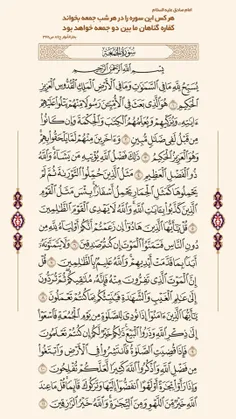 امام صادق علیه السلام
هر کس این سوره را در هر شب جمعه بخواند
کفاره گناهان ما بین دو جمعه خواهد بود
سُورَةُ الْجُمُعَةِ
بِسْمِ اللَّهِ الرَّحْمَٰنِ الرَّحِيمِ
يُسَبِّحُ لِلَّهِ مَا فِي السَّمَاوَاتِ وَمَا فِي الْأَرْضِ الْمَلِكِ الْقُدُّوسِ الْعَزِيزِ
الْحَكِيمِ ۝ هُوَ الَّذِي بَعَثَ فِي الْأُمِّيِّينَ رَسُولًا مِنْهُمْ يَتْلُو عَلَيْهِمْ
آيَاتِهِ وَيُزَكِّيهِمْ وَيُعَلِّمُهُمُ الْكِتَابَ وَالْحِكْمَةَ وَإِنْ كَانُوا
مِنْ قَبْلُ لَفِي ضَلَالٍ مُبِينٍ ۝ وَآخَرِينَ مِنْهُمْ لَمَّا يَلْحَقُوا بِهِمْ
وَهُوَ الْعَزِيزُ الْحَكِيمُ ۝ ذَٰلِكَ فَضْلُ اللَّهِ يُؤْتِيهِ مَنْ يَشَاءُ وَاللَّهُ
ذُو الْفَضْلِ الْعَظِيمِ ۝ مَثَلُ الَّذِينَ حُمِّلُوا التَّوْرَاةَ ثُمَّ لَمْ
يَحْمِلُوهَا كَمَثَلِ الْحِمَارِ يَحْمِلُ أَسْفَارًا بِئْسَ مَثَلُ الْقَوْمِ
الَّذِينَ كَذَّبُوا بِآيَاتِ اللَّهِ وَاللَّهُ لَا يَهْدِي الْقَوْمَ الظَّالِمِينَ ۝
قُلْ يَا أَيُّهَا الَّذِينَ هَادُوا إِنْ زَعَمْتُمْ أَنَّكُمْ أَوْلِيَاءُ لِلَّهِ مِنْ
دُونِ النَّاسِ فَتَمَنَّوُا الْمَوْتَ إِنْ كُنْتُمْ صَادِقِينَ ۝ وَلَا يَتَمَنَّوْنَهُ
أَبَدًا بِمَا قَدَّمَتْ أَيْدِيهِمْ وَاللَّهُ عَلِيمٌ بِالظَّالِمِينَ ۝ قُلْ
إِنَّ الْمَوْتَ الَّذِي تَفِرُّونَ مِنْهُ فَإِنَّهُ مُلَاقِيكُمْ ثُمَّ تُرَدُّونَ
إِلَىٰ عَالِمِ الْغَيْبِ وَالشَّهَادَةِ فَيُنَبِّئُكُمْ بِمَا كُنْتُمْ تَعْمَلُونَ ۝
يَا أَيُّهَا الَّذِينَ آمَنُوا إِذَا نُودِيَ لِلصَّلَاةِ مِنْ يَوْمِ الْجُمُعَةِ فَاسْعَوْا
إِلَىٰ ذِكْرِ اللَّهِ وَذَرُوا الْبَيْعَ ذَٰلِكُمْ خَيْرٌ لَكُمْ إِنْ كُنْتُمْ تَعْلَمُونَ
۝ فَإِذَا قُضِيَتِ الصَّلَاةُ فَانْتَشِرُوا فِي الْأَرْضِ وَابْتَغُوا
مِنْ فَضْلِ اللَّهِ وَاذْكُرُوا اللَّهَ كَثِيرًا لَعَلَّكُمْ تُفْلِحُونَ ۝
وَإِذَا رَأَوْا تِجَارَةً أَوْ لَهْوًا انْفَضُّوا إِلَيْهَا وَتَرَكُوكَ قَائِمًا قُلْ مَا عِنْدَ
اللَّهِ خَيْرٌ مِنَ اللَّهْوِ وَمِنَ التِّجَارَةِ وَاللَّهُ خَيْرُ الرَّازِقِينَ ۝